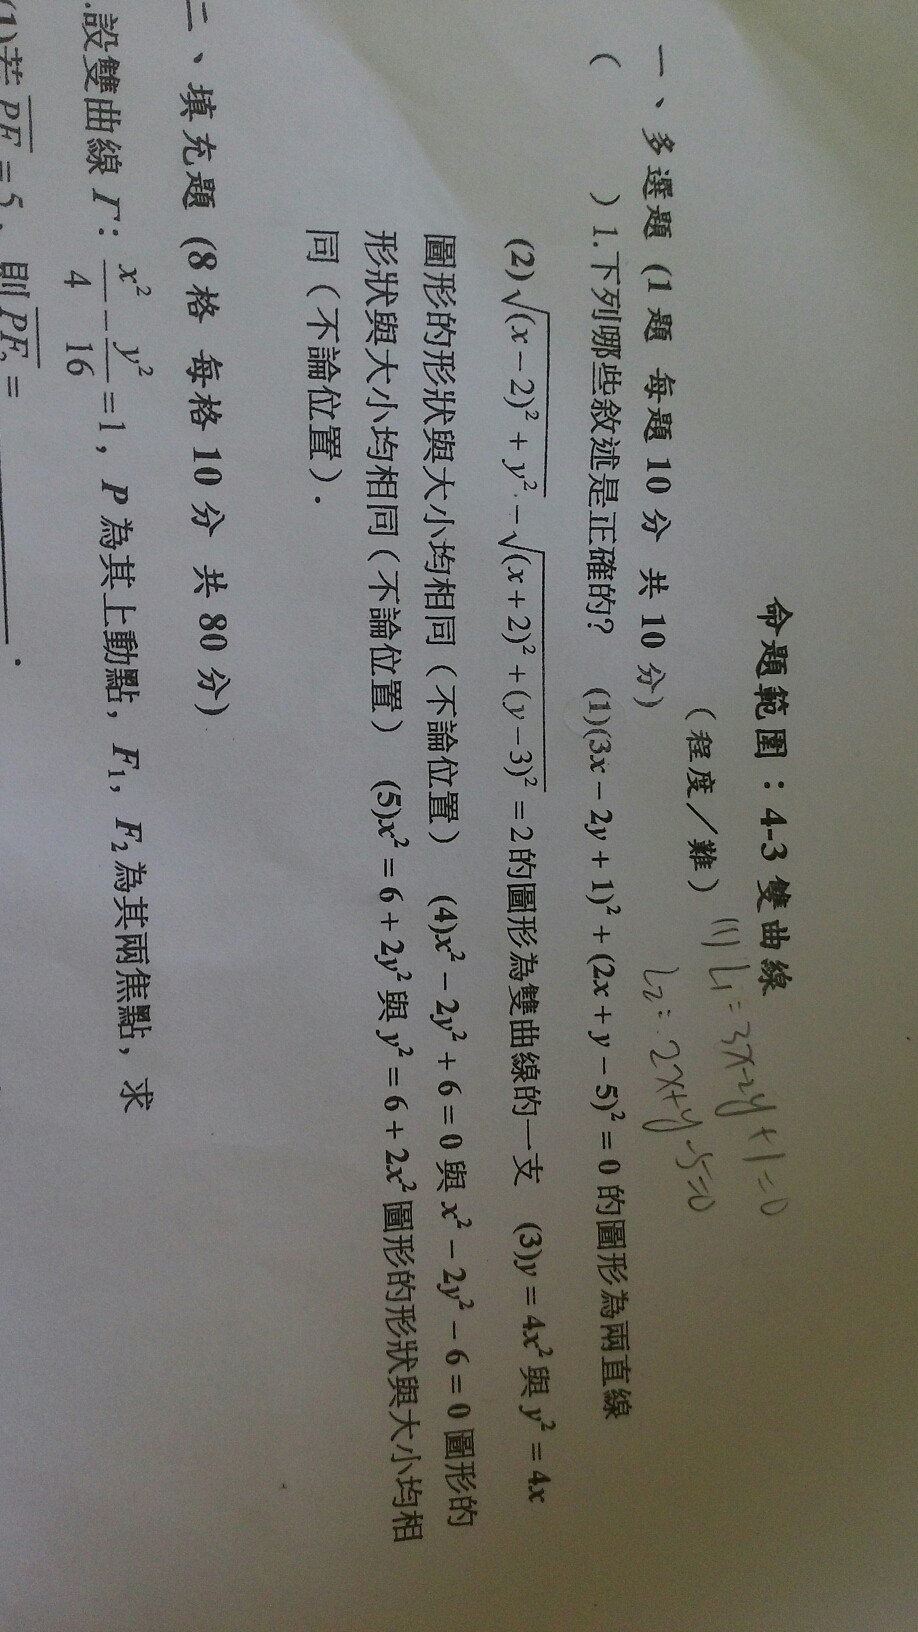 命題範圍：4-3 雙曲線
（程度／難）
(1) L1 = 3x-2y+1=0
L2 = 2x+y-5=0
一、多選題 (1 題 每題 10 分 共 10 分)
(　　) 1.下列哪些敘述是正確的? (1)(3x－2y＋1)²＋(2x＋y－5)²＝0 的圖形為兩直線
(2)√((x－2)²＋y²)－√((x＋2)²＋(y－3)²)＝2 的圖形為雙曲線的一支 (3)y＝4x² 與 y²＝4x
圖形的形狀與大小均相同（不論位置） (4)x²－2y²＋6＝0 與 x²－2y²－6＝0 圖形的
形狀與大小均相同（不論位置） (5)x²＝6＋2y² 與 y²＝6＋2x² 圖形的形狀與大小均相
同（不論位置）.
二、填充題 (8 格 每格 10 分 共 80 分)
.設雙曲線 Γ：x²/4－y²/16＝1，P 為其上動點，F₁，F₂ 為其兩焦點，求